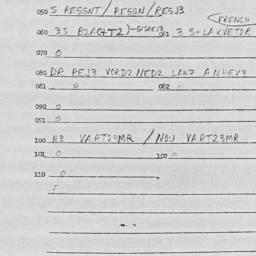 050 S RESGNT / RESGN / RESJ3
(FRENCH
060 3S 061 3 S+LAKVET2R
070 0
080 DR PEJ3 VORD2 NED2 LANZ
081 0 082 0
090 0
091 0
100 N3 VART23MR / NOU VART23MR
101 0 102 0
110 0